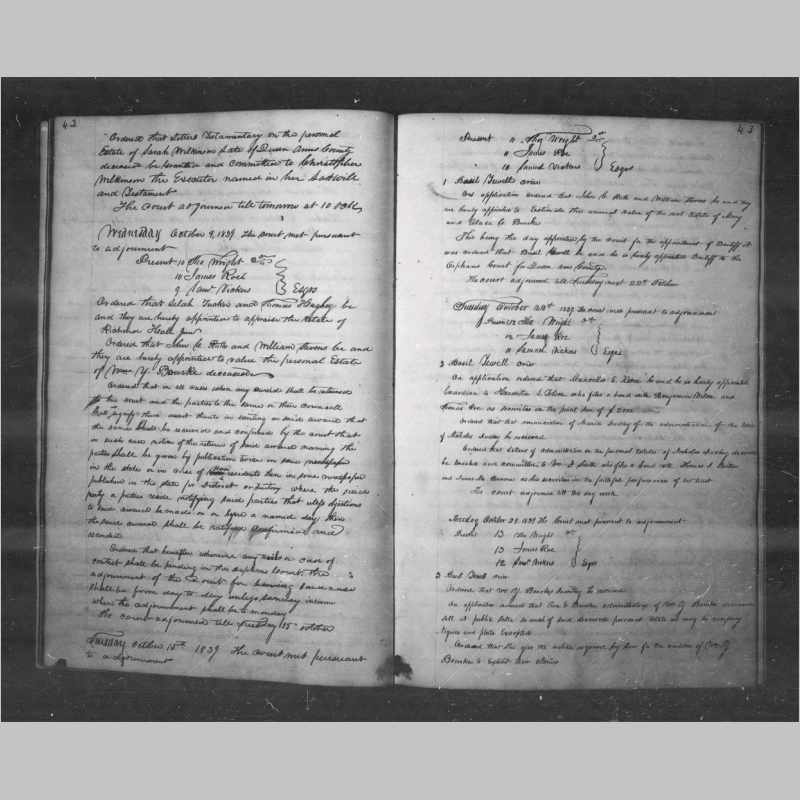 42
Ordered that letters Testamentary on the personal
Estate of Sarah Wilkinson late of Queen Anns County
deceased be Granted and committed to Christopher
Wilkinson the Executor named in her last will
and Testament
The court adjourned till tomorrow at 10 OClk
Wednesday October 9, 1839 The court met pursuant
to adjournment
Present 10 Tho Wright
10 James Roe
9 Saml Vickers Esqrs
Ordered that Selah Tucker and Thomas be
and they are hereby appointed to appraise the Estate of
Ordered that John C. Ruth and William Stevens be and
they are hereby appointed to value the personal Estate
of Wm Y. Bourke deceased
Ordered that in all cases when any award shall be returned
to this court and the parties to the same or their counsell
signify their assent thereto in writing on said award that
the same shall be received and confirmed by the court that
in such case notice of the return of said award naming the
parties shall be given by publication twice in some newspaper
in the state or in case of Non residents then in some newspaper
published in the state District or Territory where the said
party or parties reside notifying said parties that unless objections
to said award be made on or before a named day then
the said award shall be ratified confirmed and
recorded
Ordered that hereafter whenever any a case of
contest shall be pending in the orphans court, the
adjournment of the Court for hearing said case
shall be from day to day unless sunday intervene
when the adjournment shall be to monday
The court adjourned till Tuesday 15th October
Tuesday October 15th 1839 The court met pursuant
to adjournment
43
Present 11 Tho Wright
11 James Roe
10 Samuel Vickers Esqrs
1 Basil Jewell crier
On application ordered that John C. Ruth and William Stevens be and they
are hereby appointed to Estimate the annual value of the real Estate of Mary
and Bourke
This being the day appointed by the court for the appointment of Bailiff it
was ordered that Basil Jewell be and he is hereby appointed Bailiff to the
Orphans Court for Queen Anns County
The court adjourned till Tuesday next 22nd October
Tuesday October 22nd 1839 The court met pursuant to adjournment
Present 12 Tho Wright
12 James Roe
11 Samuel Vickers Esqrs
2 Basil Jewell crier
On application ordered that E. be and he is hereby appointed
Guardian to who files a bond with Benjamin and
Thomas as securities in the penal sum of
Ordered that the renunciation of of the administration of the Estate
of Nicholas be received
Ordered that letters of administration on the personal Estate of Nicholas deceased
be Granted and committed to Wm who files a bond with Thomas
and James as his securities for the faithful performance of his trust
The court adjourned till this day week
Tuesday October 29, 1839 The Court met pursuant to adjournment
Present 13 Tho Wright
13 James Roe
12 Saml Vickers Esqrs
3 Basil Jewell crier
Ordered that Wm Y Bourkes Inventory be received
On application ordered that Bourke administratrix of Wm Y Bourke deceased
sell at public sale so much of said deceaseds personal estate as may be necessary
negroes and plate Excepted
Ordered that She give the notice required by law for the creditors of Wm Y
Bourke to Exhibit their claims